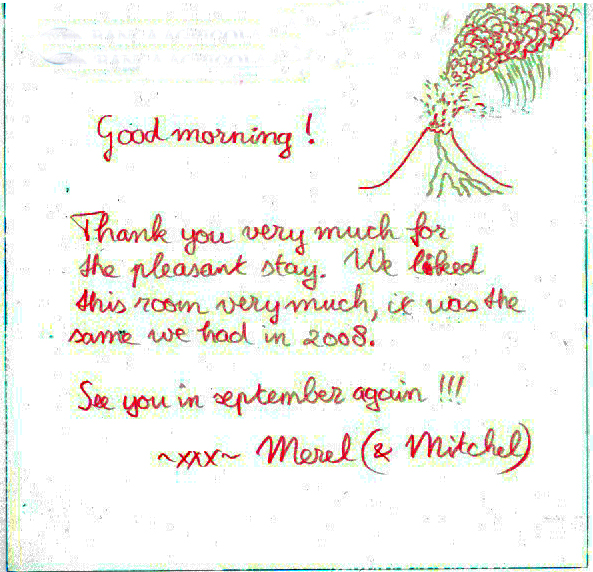 Good morning!
Thank you very much for
the pleasant stay. We liked
this room very much, it was the
same we had in 2008.
See you in september again !!!
~xxx~ Merel (& Mitchel)